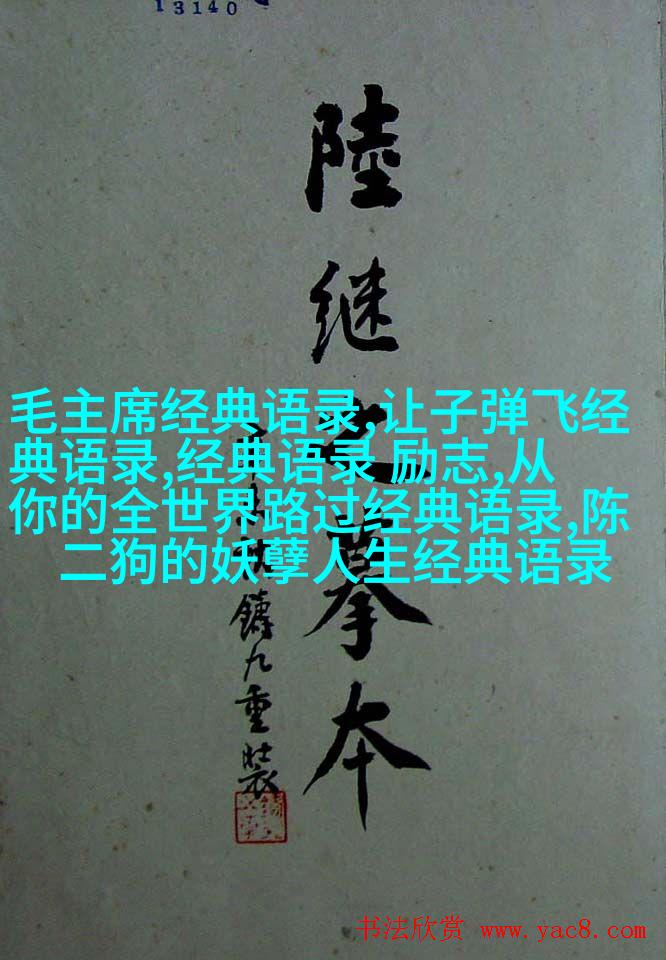 13140
陸継之摹本
鑄九重裝
毛主席经典语录,让子弹飞经
典语录,经典语录 励志,从
你的全世界路过经典语录,陈
二狗的妖孽人生经典语录
书法欣赏 www.yac8.com